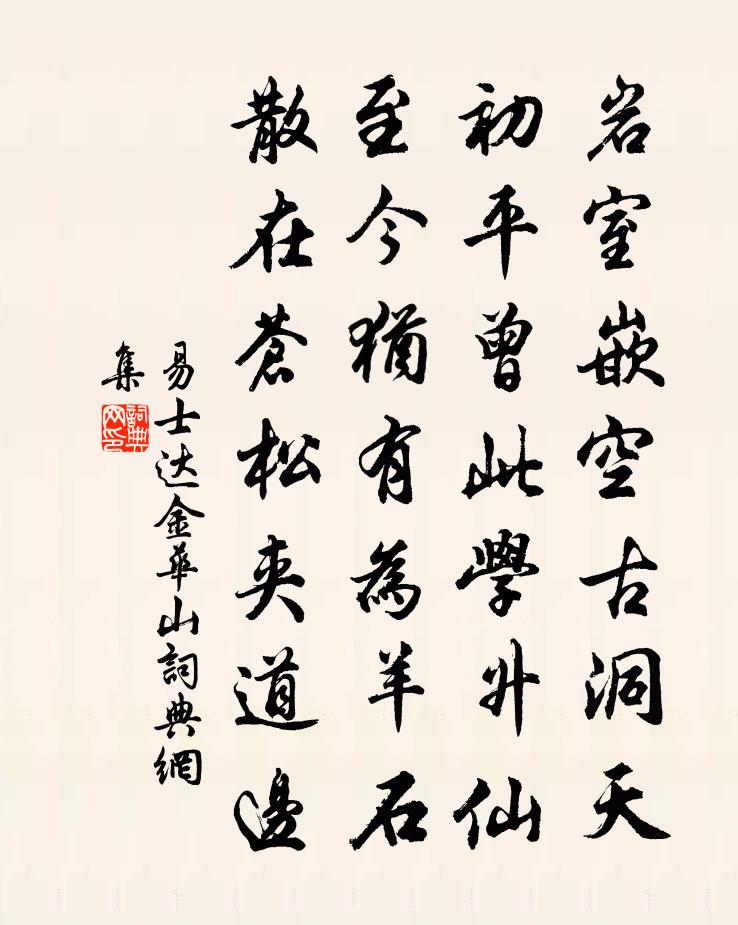 岩室嵌空古洞天
初平曾此學升仙
至今猶有為羊石
散在蒼松夾道邊
易士达金華山詞典網
集
詞典
网印